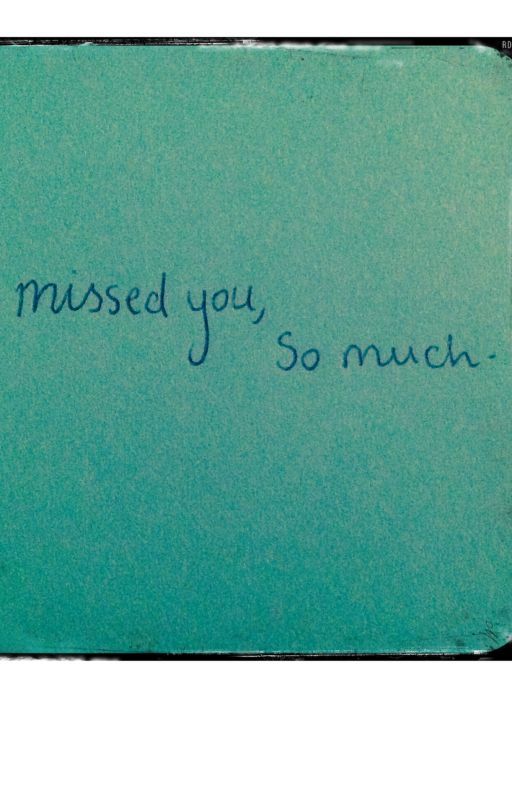 RD
missed you,
So much.